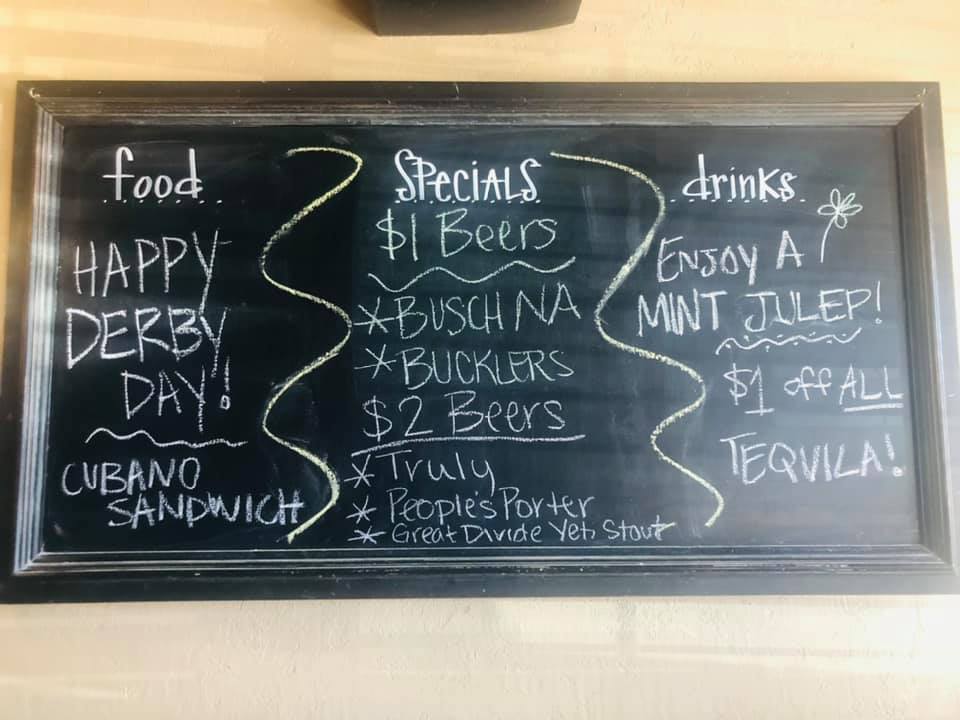 food
HAPPY
DERBY
DAY!
CUBANO
SANDWICH
SPECIALS
$1 Beers
*BUSCH NA
*BUCKLERS
$2 Beers
*Truly
* People's Porter
* Great Divide Yeti Stout
drinks
ENJOY A
MINT JULEP!
$1 off ALL
TEQUILA!